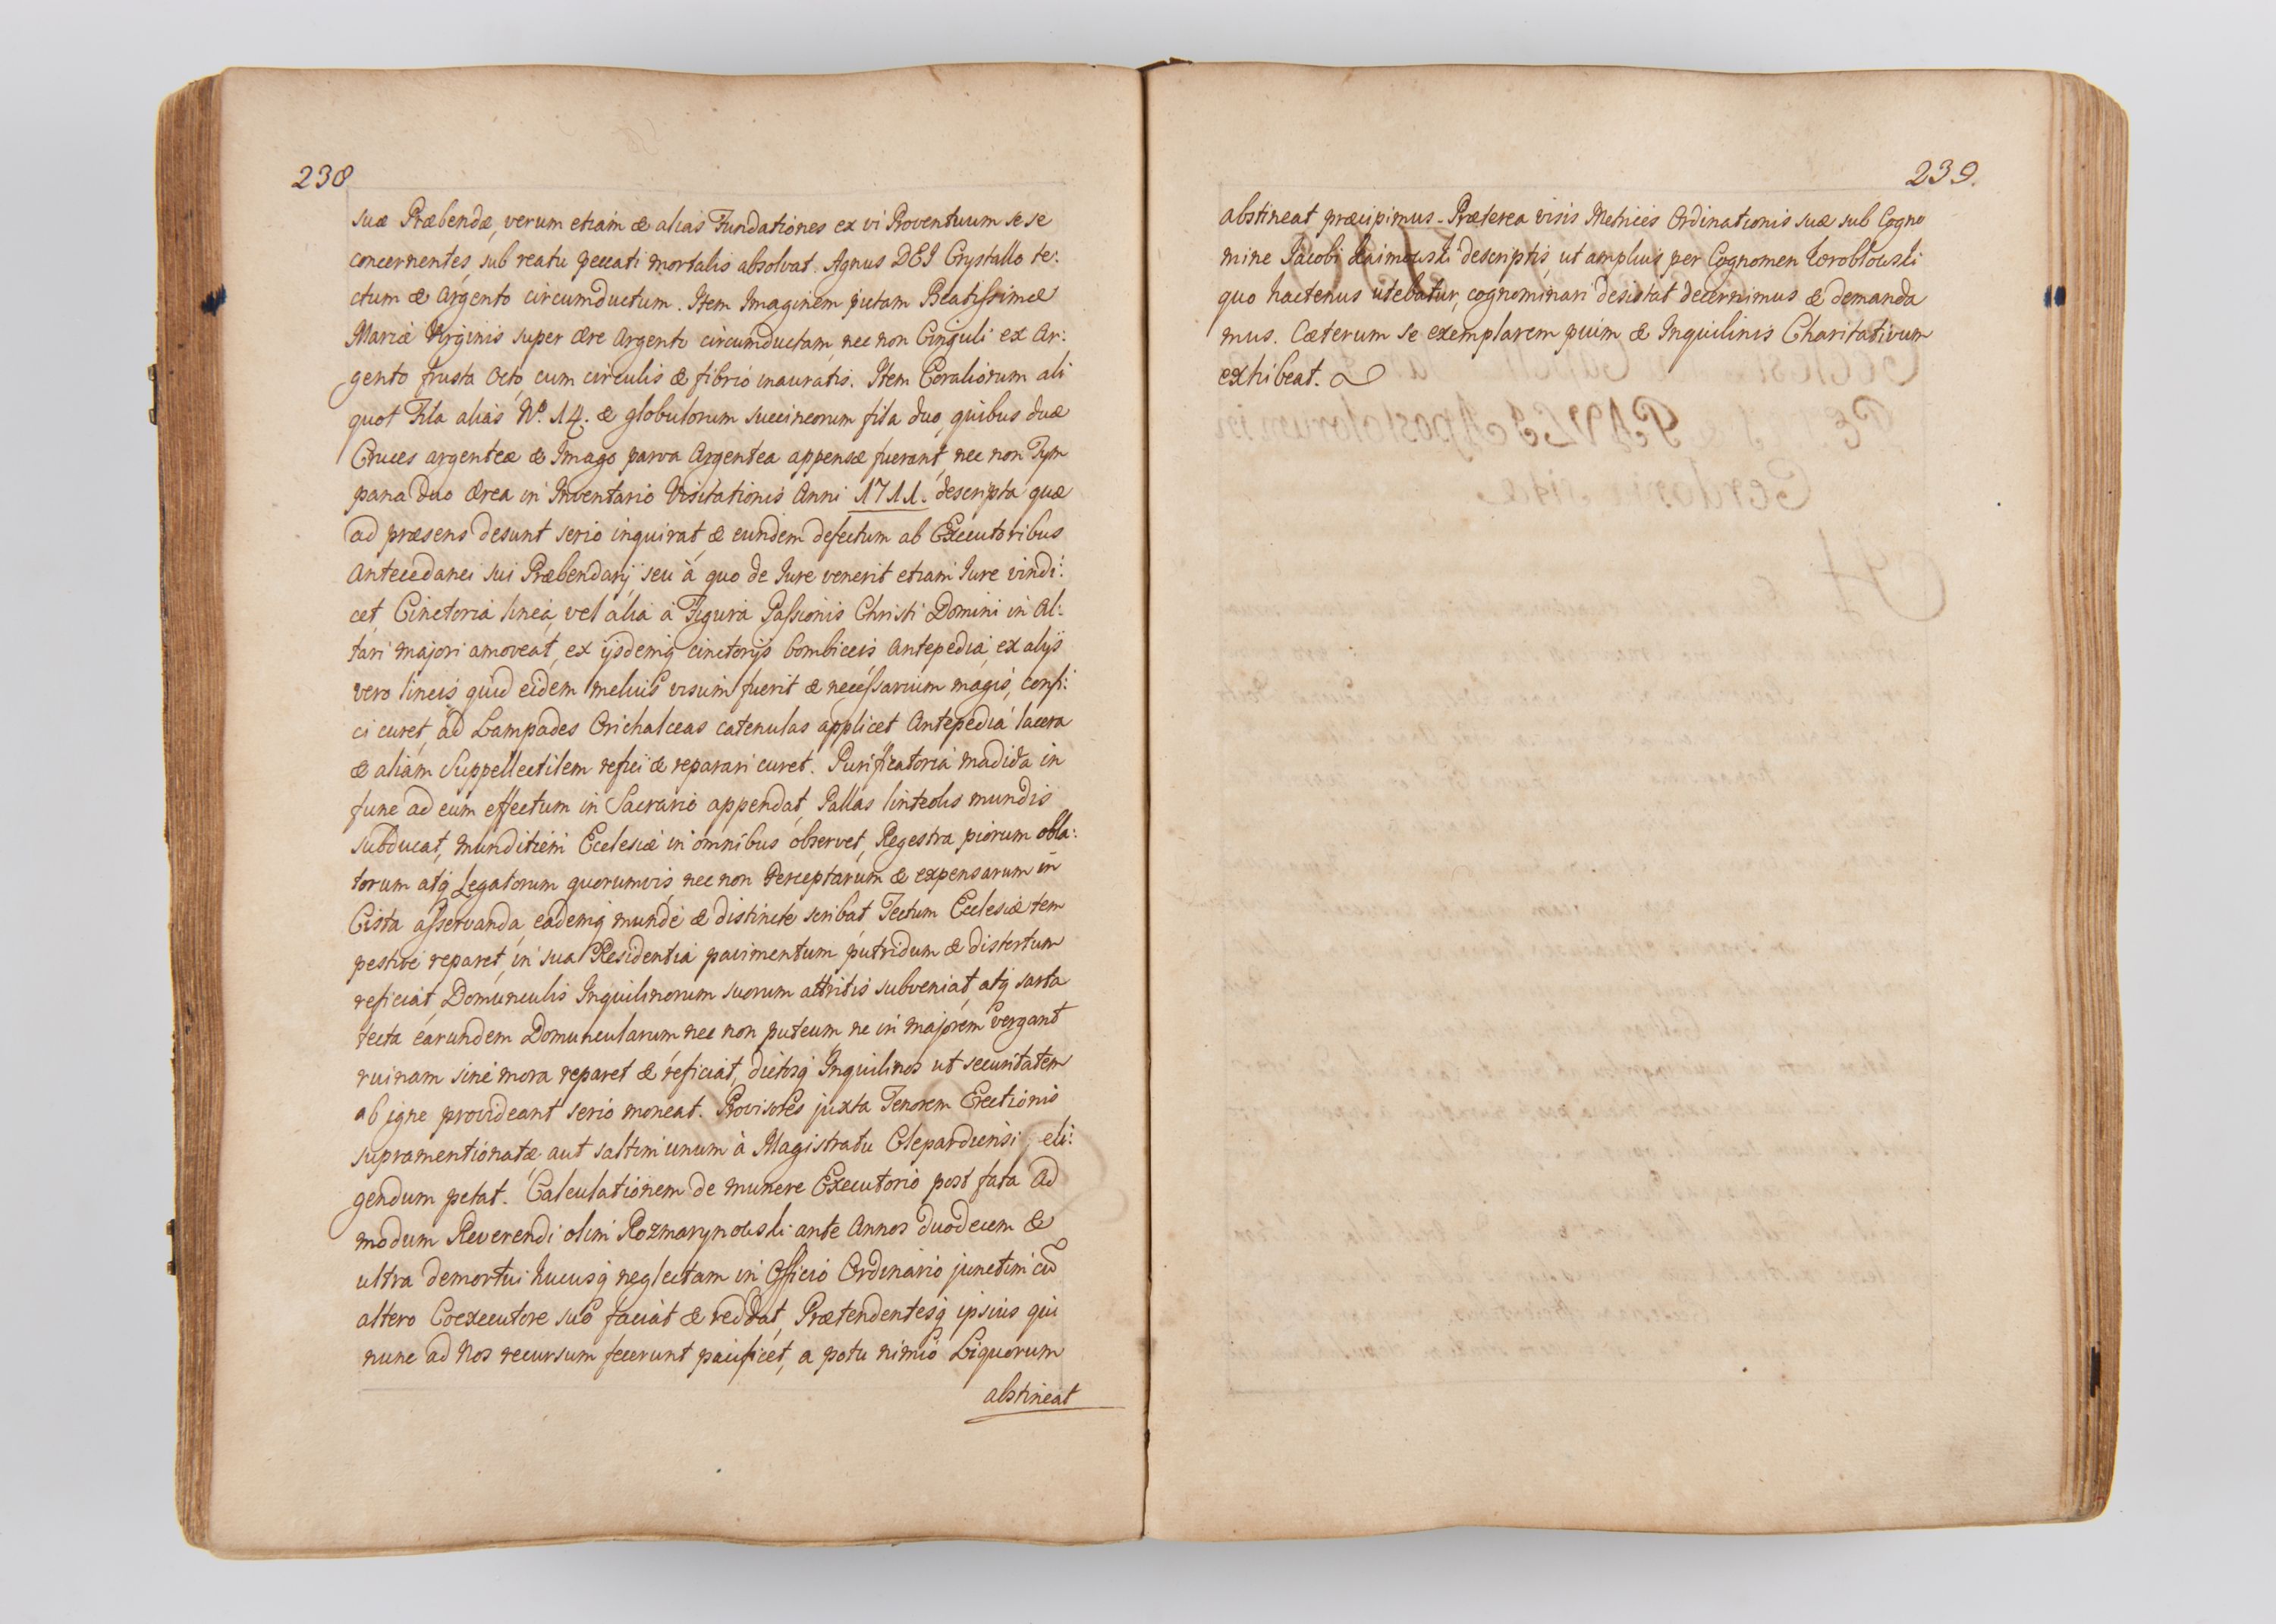 238
suæ Præbendæ, verum etiam & alias Fundationes ex vi Proventuum se se
concernentes, sub reatu peccati mortalis absolvat. Agnus DEI Crystallo te:
ctum & argento circumductum. Item Imaginem pictam Beatissimæ
Mariæ Virginis super Ære Argento circumductam, nec non Cinguli ex Ar:
gento frusta Octo, cum circulis & fibrio inauratis. Item Coraliorum ali
quot Fila alias Nº. 14. & globulorum succineorum fila duo, quibus duæ
Cruces argenteæ & Imago parva Argentea appensæ fuerant, nec non Tym
pana duo Ærea in Inventario Visitationis Anni 1711. descripta quæ
ad præsens desunt serio inquirat, & eundem defectum ab Executoribus
Antecedanei sui Præbendarij seu à quo de Iure venerit etiam Iure vindi:
cet, Cinctoria linea, vel alia à Figura Passionis Christi Domini in Al:
tari majori amoveat, ex ijsdemq cinctorijs bombiceis Antepedia, ex alijs
vero lineis quid eidem melius visum fuerit & necessarium magis, confi:
ci curet, ad Lampades Orichalceas catenulas applicet Antepedia lacera
& aliam Suppellectilem refici & reparari curet. Purificatoria madida in
fune ad eum effectum in Sacrario appendat, Pallas linteolis mundis
subducat, munditiem Ecclesiæ in omnibus observet, Regestra piorum obla:
torum atq Legatorum quorumvis, nec non Perceptarum & expensarum in
Cista asservanda, eademq munde & distincte scribat Tectum Ecclesiæ tem
pestive reparet, in sua Residentia pavimentum putridum & distortum
reficiat, Domunculis Inquilinorum suorum attritis subveniat, atq sarta
tecta earundem Domuncularum nec non puteum, ne in majorem vergant
ruinam sine mora reparet & reficiat, dictosq Inquilinos ut securitatem
ab igne provideant serio moneat. Provisores juxta Tenorem Erectionis
supramentionatæ aut saltim unum à Magistratu Clepardiensi, eli:
gendum petat. Calculationem de munere Executorio post fata Ad
modum Reverendi olim Rozmarynowski ante Annos duodecim &
ultra demortui hucusq neglectam in Officio Ordinario junctim cũ
altero Coexecutore suo faciat & reddat, Prætendentesq ipsius qui
nunc ad Nos recursum fecerunt pacificet, a potu nimio Liquorum
abstineat
239.
abstineat præcipimus. Præterea visis Metricis Ordinationis suæ sub Cogno
mine Iacobi Klaimowski descriptis, ut amplius per Cognomen
quo hactenus utebatur, cognominari desistat decernimus & demanda
mus. Cæterum se exemplarem pium & Inquilinis Charitativum
exhibeat.